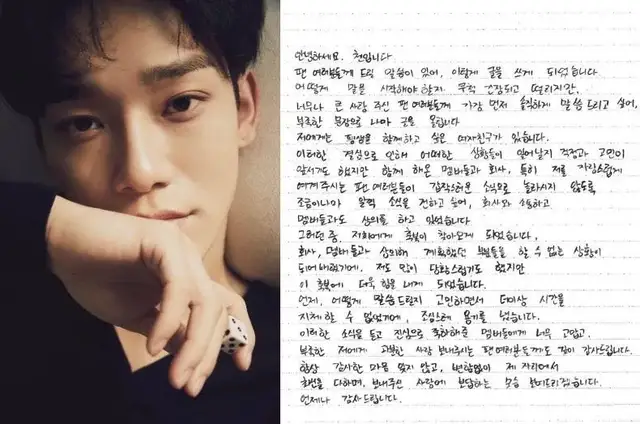 안녕하세요. 첸입니다
팬 여러분들께 드릴 말씀이 있어, 이렇게 글을 쓰게 되었습니다
어떻게 말을 시작해야 할지 무척 긴장되고 떨리지만,
너무나 큰 사랑 주신 팬 여러분들께 가장 먼저 솔직하게 말씀드리고 싶어,
부족한 문장으로 나마 글을 올립니다
저에게는 평생을 함께하고 싶은 여자친구가 있습니다.
이러한 결심으로 인해 어떠한 상황들이 일어날지 걱정과 고민이
앞서기도 했지만 함께 해온 멤버들과 회사, 특히 저를 자랑스럽게
여겨 주시는 팬 여러분들이 갑작스러운 소식으로 놀라시지 않도록
조금이나마 일찍 소식을 전하고 싶어, 회사와 소통하고
멤버들과도 상의를 하고 있었습니다
그러던 중, 저희에게 축복이 찾아오게 되었습니다.
회사, 멤버들과 상의해 계획했던 부분들을 할 수 없는 상황이
되어버렸기에, 저도 많이 당황스럽기도 했지만
이 축복에 더욱 힘을 내게 되었습니다.
언제, 어떻게 말씀드릴지 고민하면서 더이상 시간을
지체 할 수 없었기에, 조심스레 용기를 냈습니다.
이러한 소식을 듣고 진심으로 축하해준 멤버들에게 너무 고맙고,
부족한 저에게 과분한 사랑 보내주시는 팬 여러분들께도 깊이 감사드립니다.
항상 감사한 마음 잊지 않고, 변함없이 제 자리에서
최선을 다하며, 보내주신 사랑에 보답하는 모습 보여드리겠습니다.
언제나 감사드립니다.